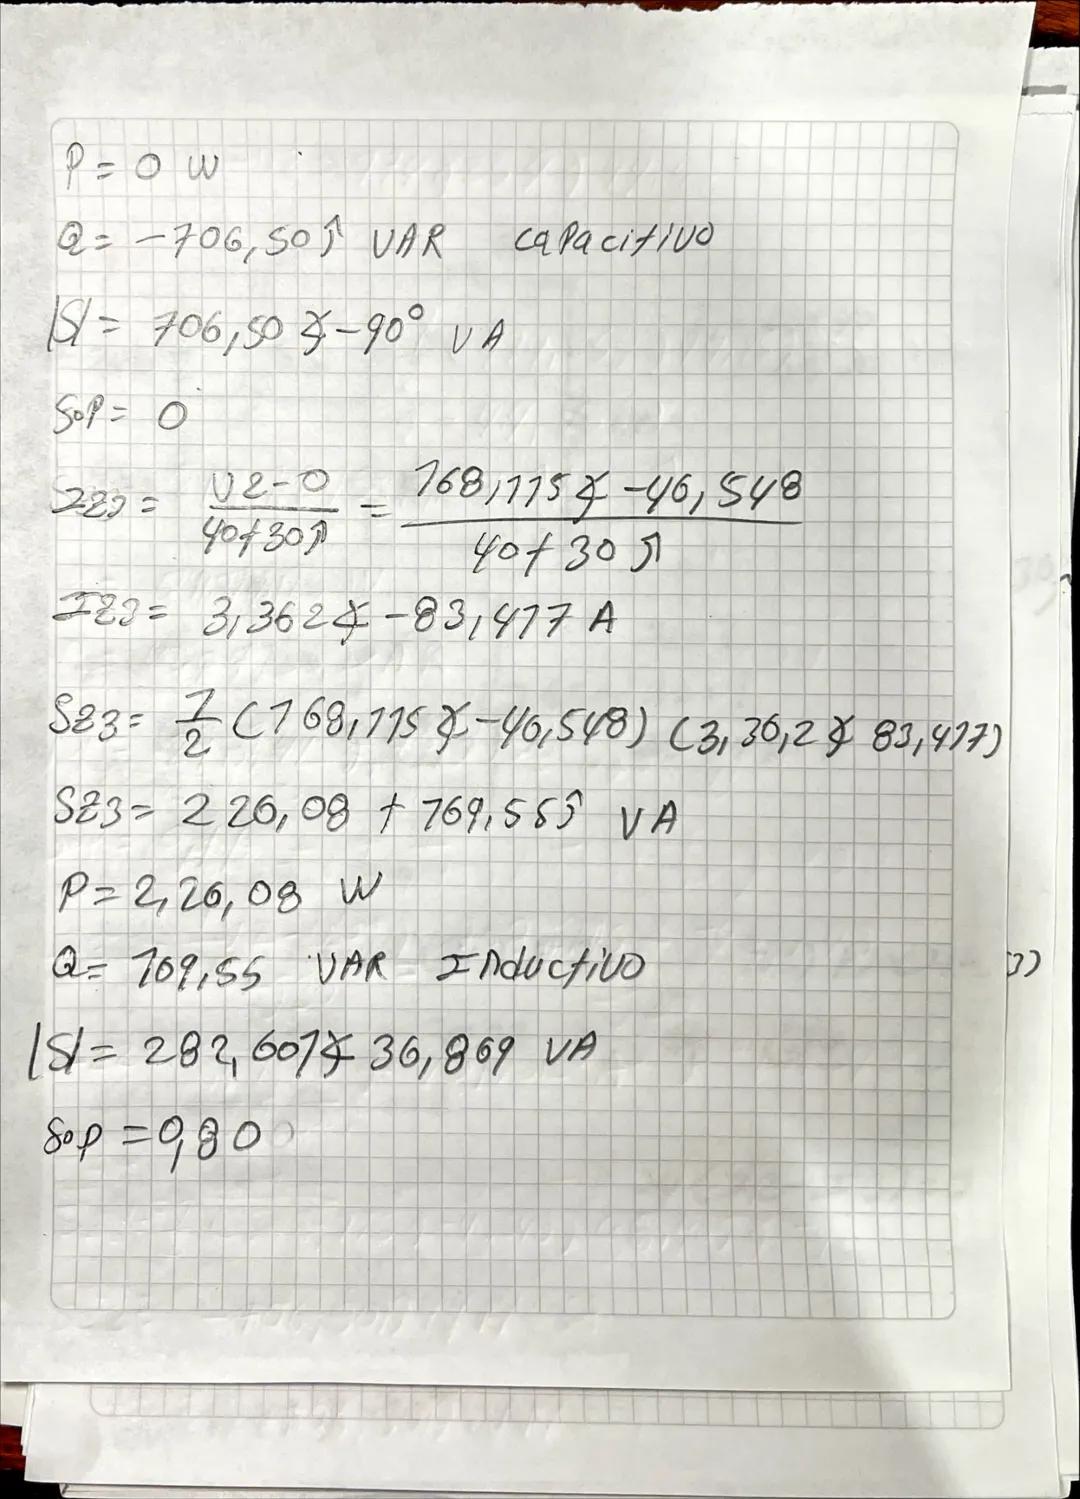 P= 0 W
Q= -706,50 ĵ VAR capacitivo
|S|= 706,50 ∡-90° VA
fop= 0
IZ3 = V2-0 / 40+30ĵ = 168,115∡ -46,548 / 40+30ĵ
IZ3= 3,362∡ -83,417 A
SZ3= 1/2 (168,115∡-46,548) (3,36,2∡ 83,417)
SZ3= 226,08 + 169,55ĵ VA
P= 2,26,08 W
Q= 169,55 VAR Inductivo
3)
|S|= 282,601∡ 36,869 VA
fop =0,80